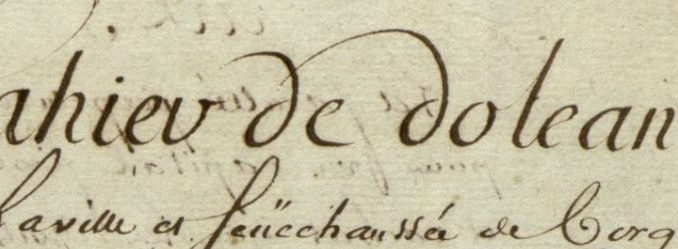 ahier de dolean
laville et Senechaussée de Corg